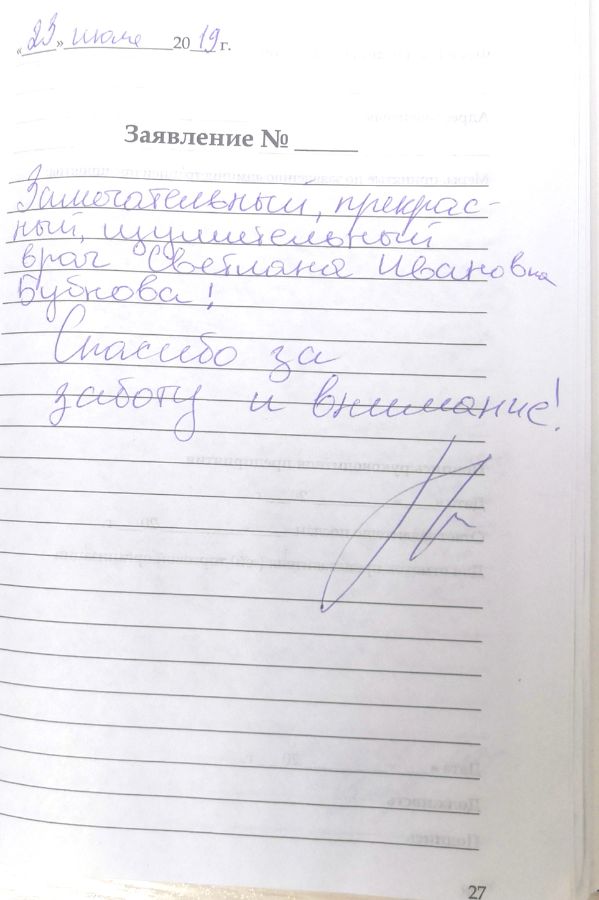 «23» июля 2019 г.
Заявление № _____
Замечательный, прекрас-
ный, изумительный
врач Светлана Ивановна
Бубнова!
Спасибо за
заботу и внимание!
27